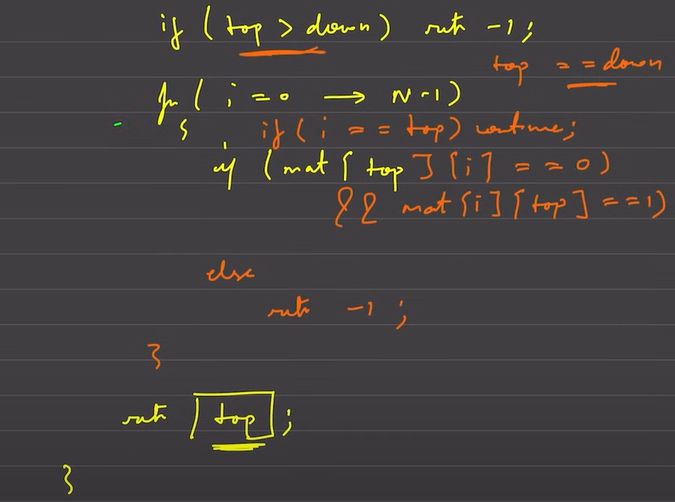 if (top > down) ret -1;
top == down
for (i = 0 → N-1)
{ if (i == top) continue;
if (mat[top][i] == 0)
&& mat[i][top] == 1)
else
ret -1;
}
ret top;
}